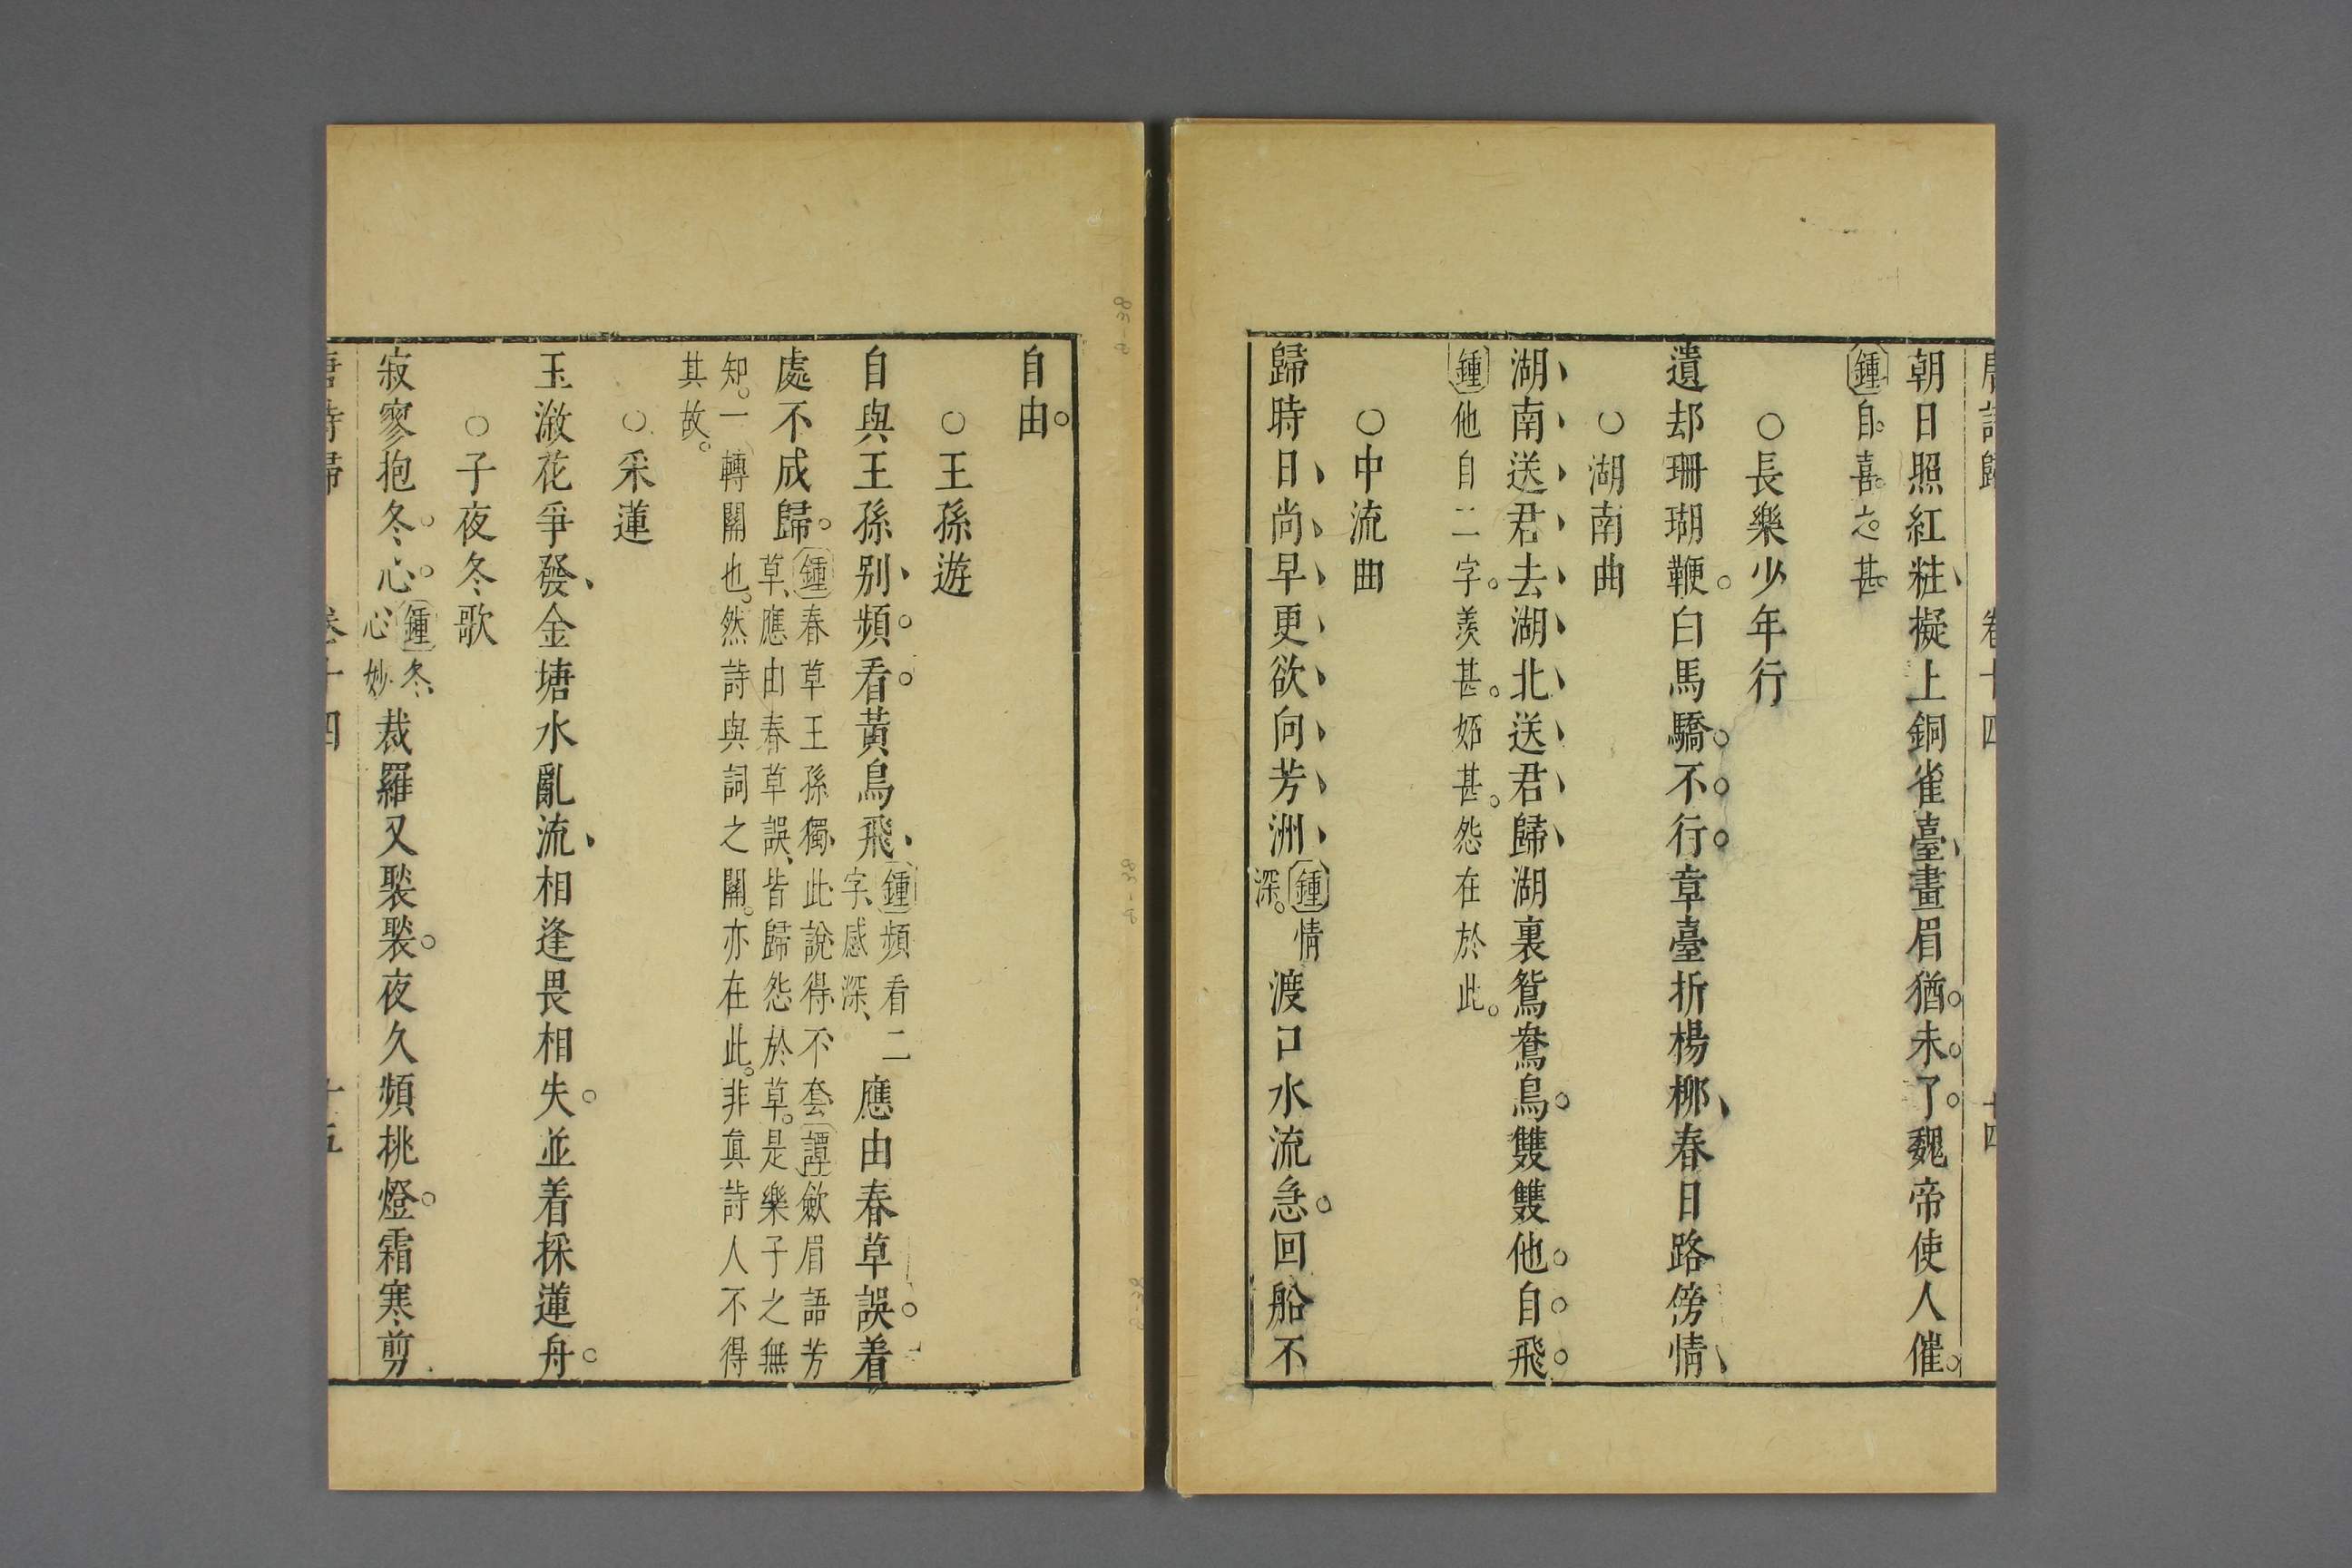 唐詩歸 卷十四 十四
朝日照紅粧擬上銅雀臺畫眉猶未了魏帝使人催
鍾自喜之甚
○長樂少年行
遺却珊瑚鞭白馬驕不行章臺折楊柳春日路傍情
○湖南曲
湖南送君去湖北送君歸湖裏鴛鴦鳥雙雙他自飛
鍾他自二字羨甚妬甚怨在於此
○中流曲
歸時日尚早更欲向芳洲鍾情深渡口水流急回船不
自由
○王孫遊
自與王孫別頻看黃鳥飛鍾頻看二字感深應由春草誤着
處不成歸鍾春草王孫獨此說得不套譚歛眉語芳
草應由春草誤皆歸怨於草是樂子之無
知一轉關也然詩與詞之關亦在此非真詩人不得
其故
○采蓮
玉漵花爭發金塘水亂流相逢畏相失並着採蓮舟
○子夜冬歌
寂寥抱冬心鍾冬心妙裁羅又褧褧夜久頻挑燈霜寒剪
唐詩歸 卷十四 十五